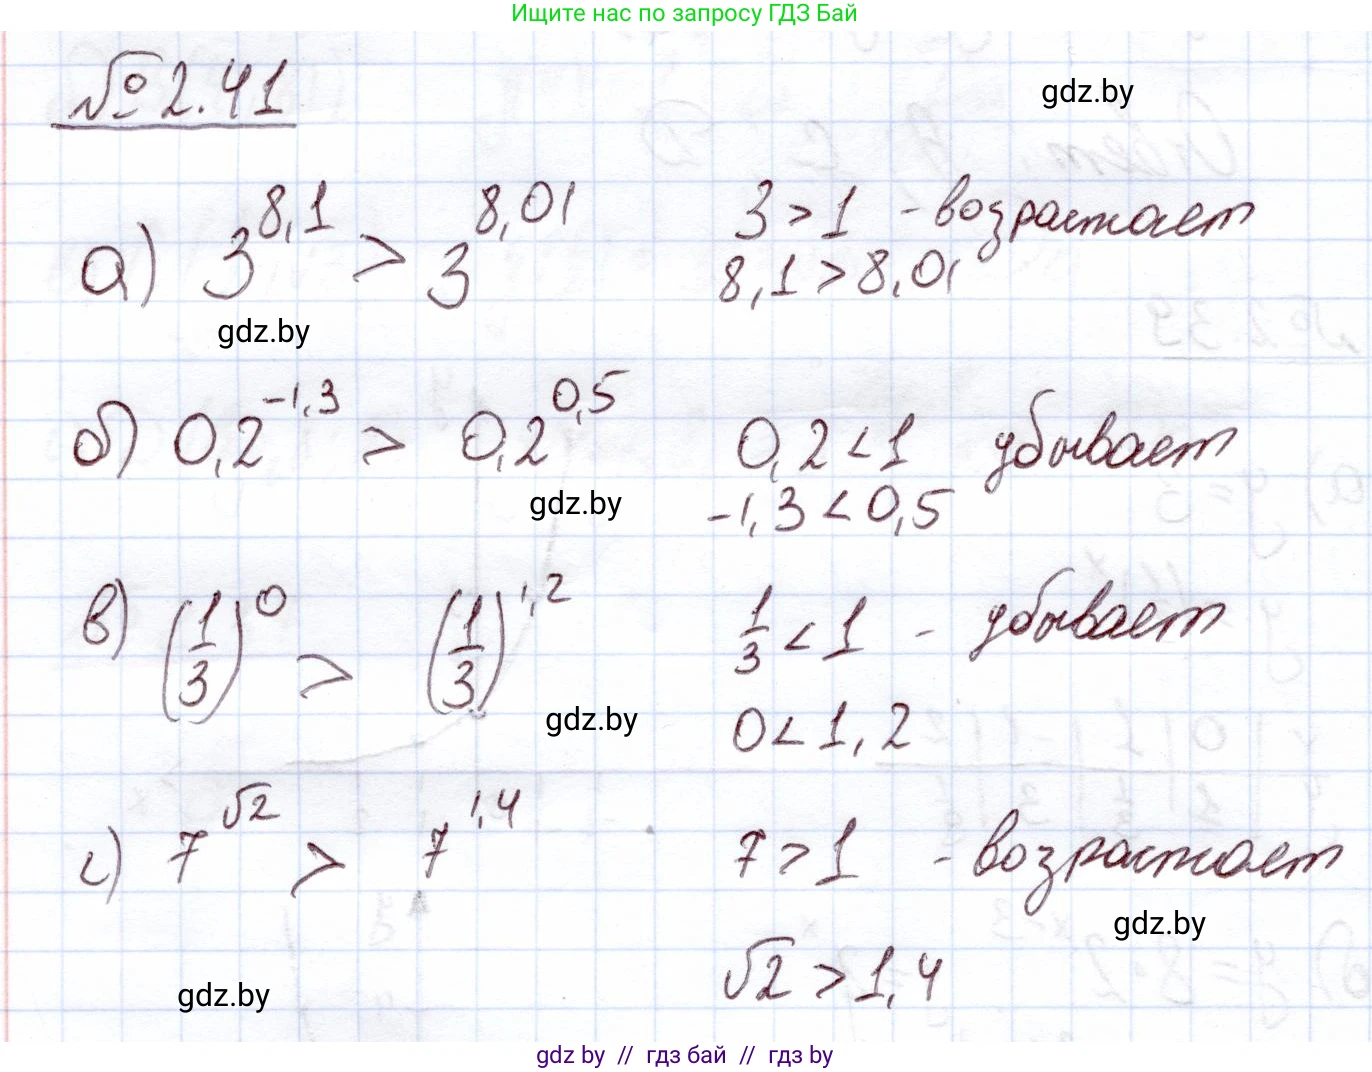 Ищите нас по запросу ГДЗ Бай
№ 2.41
gdz.by
а) 3^8,1 > 3^8,01    3 > 1 - возрастает
8,1 > 8,01
gdz.by
б) 0,2^-1,3 > 0,2^0,5    0,2 < 1 убывает
gdz.by
-1,3 < 0,5
в) (1/3)^0 > (1/3)^1,2    1/3 < 1 - убывает
gdz.by
0 < 1,2
г) 7^√2 > 7^1,4    7 > 1 - возрастает
gdz.by
√2 > 1,4
gdz.by
gdz by // гдз бай // гдз by